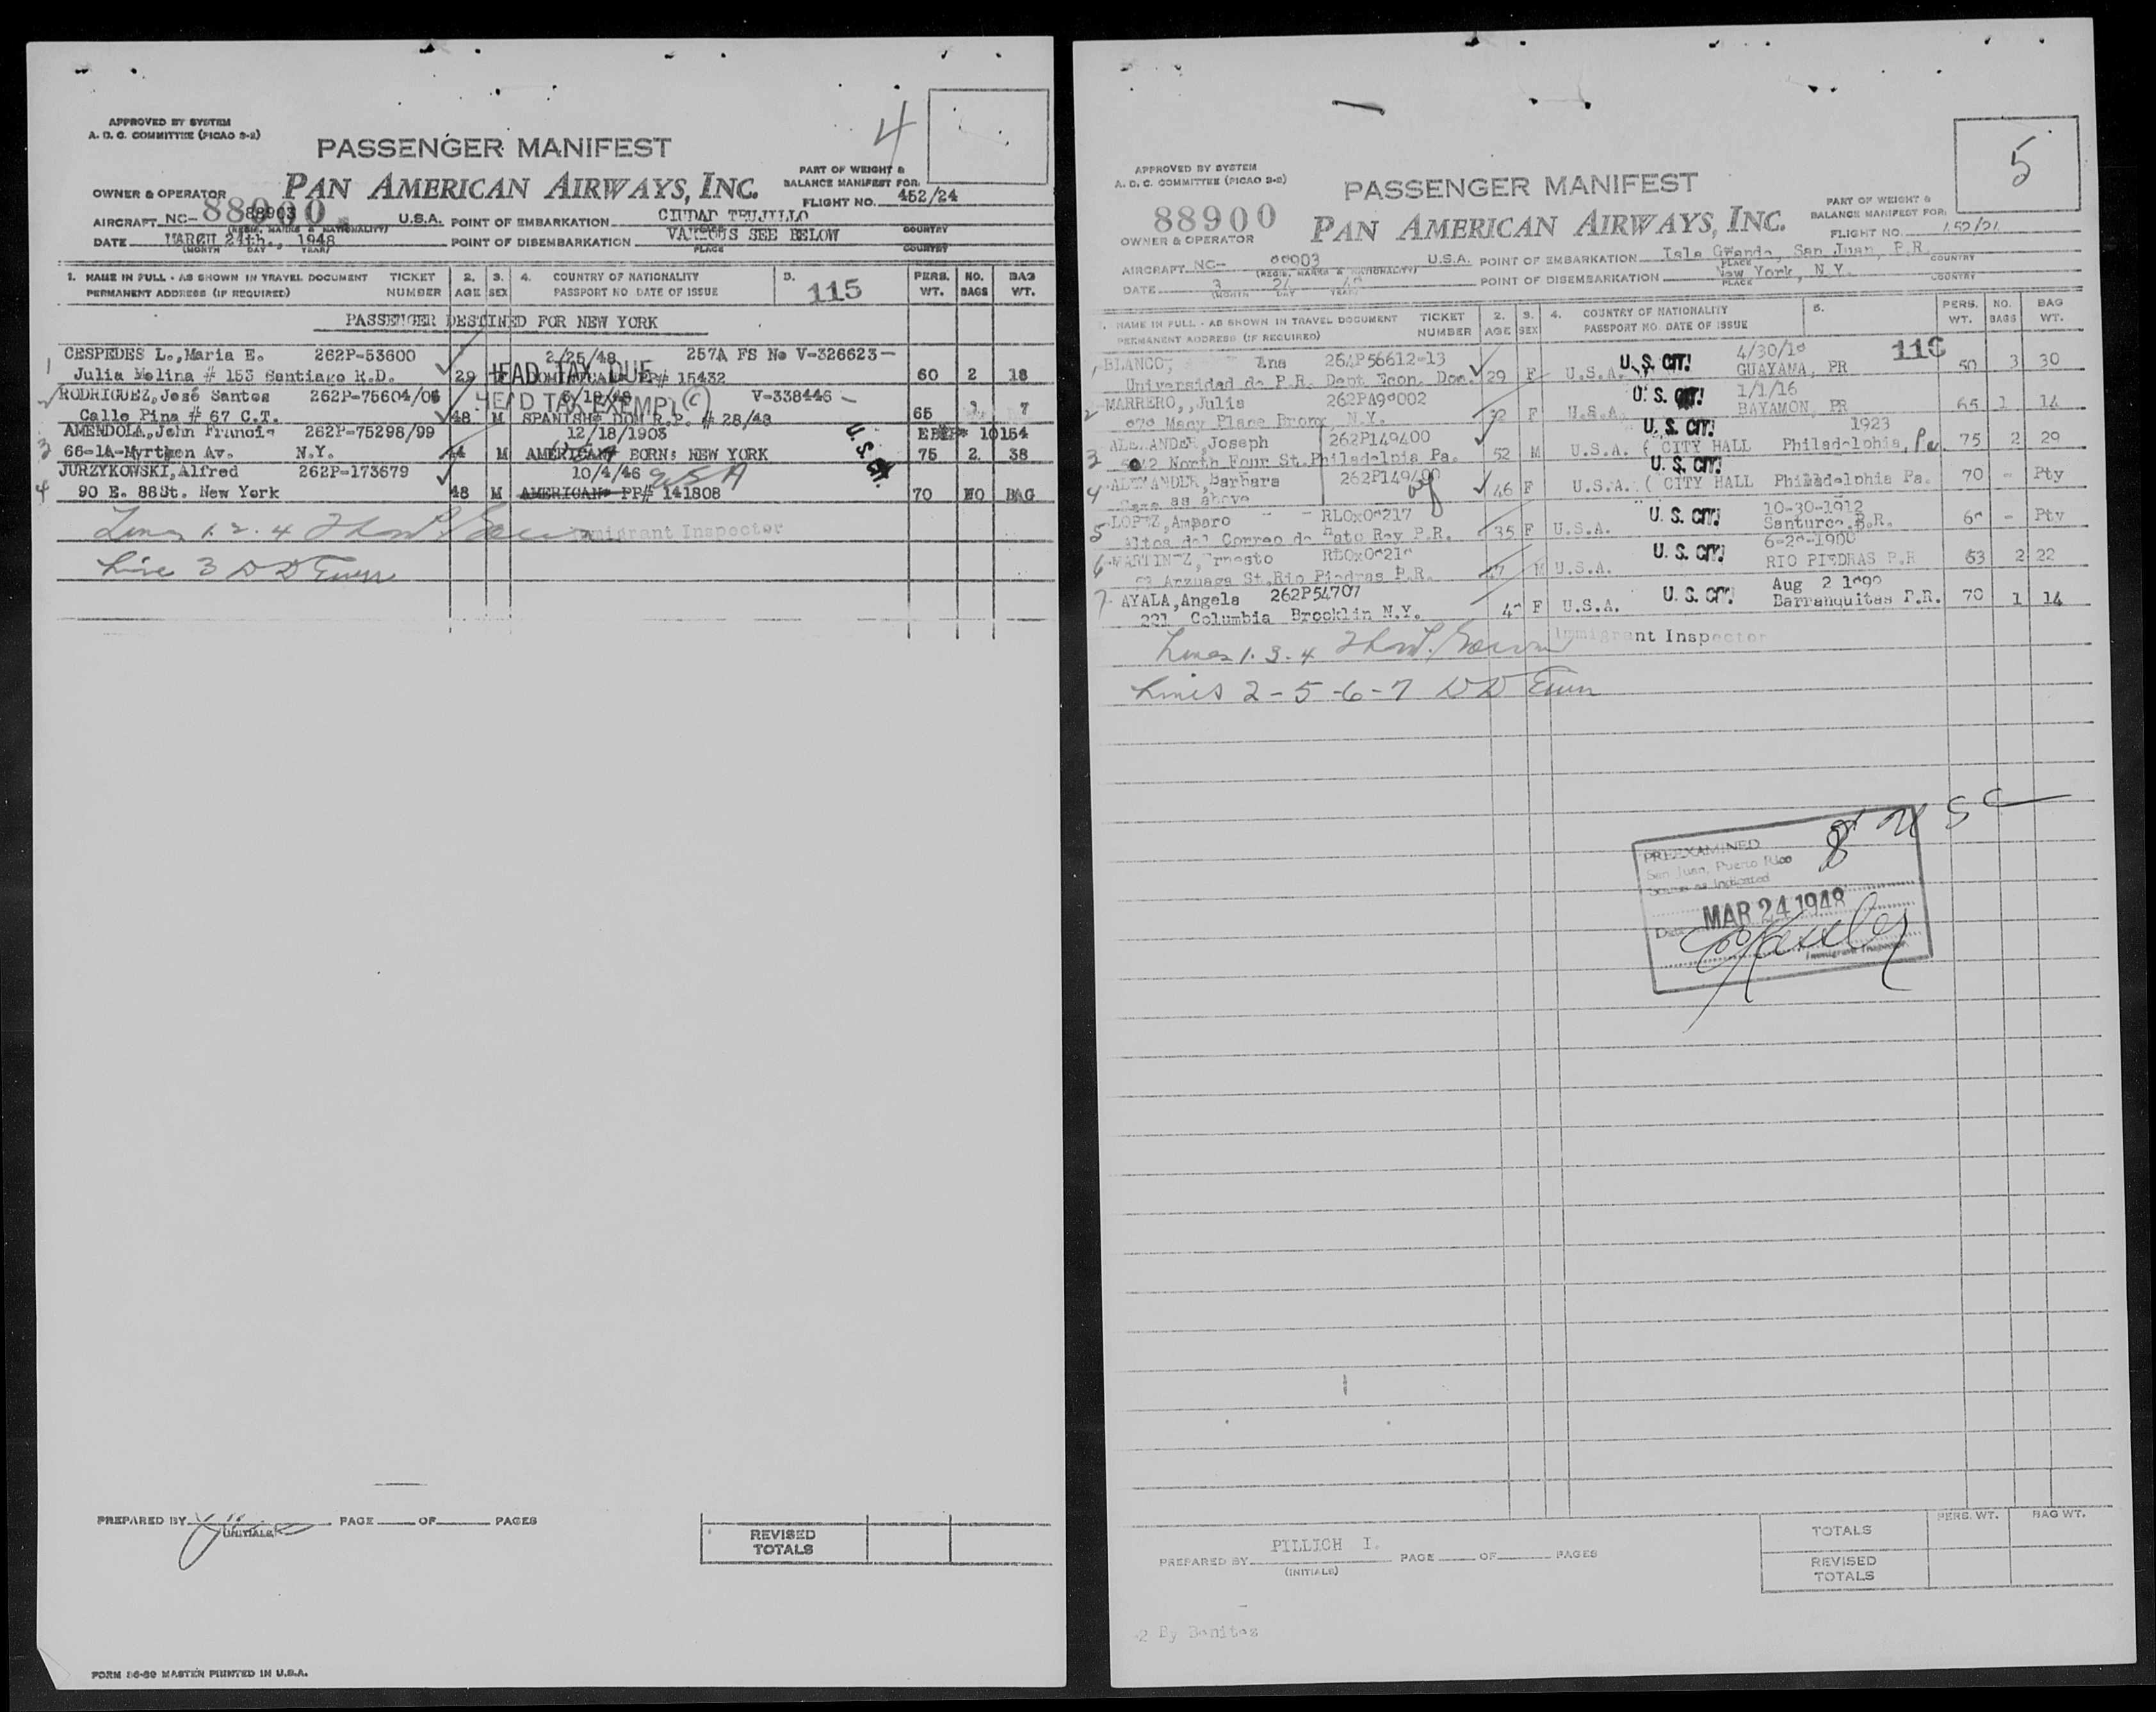 4
APPROVED BY SYSTEM
A. D. C. COMMITTEE (PICAO 3-2)
PASSENGER MANIFEST
PART OF WEIGHT &
BALANCE MANIFEST FOR:
OWNER & OPERATOR PAN AMERICAN AIRWAYS, INC.
FLIGHT NO. 452/24
88900
AIRCRAFT NC- 88903 U.S.A. POINT OF EMBARKATION CIUDAD TRUJILLO
(REGIS. MARKS & NATIONALITY) PLACE COUNTRY
DATE MARCH 24th., 1948 POINT OF DISEMBARKATION VARIOUS SEE BELOW
(MONTH DAY YEAR) PLACE COUNTRY
1. NAME IN FULL - AS SHOWN IN TRAVEL DOCUMENT TICKET 2. 3. 4. COUNTRY OF NATIONALITY 5. PERS. NO. BAG
PERMANENT ADDRESS (IF REQUIRED) NUMBER AGE SEX PASSPORT NO DATE OF ISSUE 115 WT. BAGS WT.
PASSENGER DESTINED FOR NEW YORK
1 CESPEDES L.,Maria E. 262P-53600 2/25/48 257A FS No V-326623-
Julia Molina # 153 Santiago R.D. 29 HEAD TAX DUE PP# 15432 60 2 18
2 RODRIGUEZ,José Santos 262P-75604/05 HEAD TAX EXEMPT (C) V-338446 -
Calle Pina # 67 C.T. 48 M SPANISH= DOM R.P. # 28/48 65 7
3 AMENDOLA,John Francis 262P-75298/99 12/18/1903 U.S. Cit. 10154
66-1A-Myrtheon Av. N.Y. 44 M AMERICAN BORN: NEW YORK 75 2 38
4 JURZYKOWSKI,Alfred 262P-173679 10/4/46 USA
90 E. 88St. New York 48 M AMERICAN= PP# 141808 70 NO BAG
Lines 1. 2. 4 Immigrant Inspector
Line 3 D D
PREPARED BY (INITIALS) PAGE OF PAGES
REVISED
TOTALS
FORM 86-69 MASTER PRINTED IN U.S.A.
5
APPROVED BY SYSTEM
A. D. C. COMMITTEE (PICAO 3-2)
PASSENGER MANIFEST
PART OF WEIGHT &
BALANCE MANIFEST FOR:
88900
OWNER & OPERATOR PAN AMERICAN AIRWAYS, INC.
FLIGHT NO. 452/24
AIRCRAFT NC- U.S.A. POINT OF EMBARKATION Isla Grande, San Juan, P.R.
(REGIS. MARKS & NATIONALITY) PLACE COUNTRY
DATE 3 24 48 POINT OF DISEMBARKATION New York, N.Y.
(MONTH DAY YEAR) PLACE COUNTRY
1. NAME IN FULL - AS SHOWN IN TRAVEL DOCUMENT TICKET 2. 3. 4. COUNTRY OF NATIONALITY 5. PERS. NO. BAG
PERMANENT ADDRESS (IF REQUIRED) NUMBER AGE SEX PASSPORT NO. DATE OF ISSUE WT. BAGS WT.
1 BLANCO, Ana 264P56612-13 U.S. CIT! 116
Universidad de P.R. Dept Econ. Dom. 29 F U.S.A. GUAYAMA, PR 50 3 30
2 MARRERO,,Julia U.S. CIT! 1/1/16
Macy Place Bronx, N.Y. 32 F U.S.A. BAYAMON, PR 65 1 14
3 ALEXANDER,Joseph 262P149400 U.S. CIT! 1923
North Four St.Philadelpia Pa. 52 M U.S.A. ( CITY HALL Philadelphia, Pa. 75 2 29
4 ALEXANDER,Barbara 262P149400 U.S. CIT!
Same as above 46 F U.S.A. ( CITY HALL Philadelphia Pa. 70 - Pty
5 LOPEZ,Amparo U.S. CIT! 10-30-1912
Altos del Correo de Hato Rey P.R. 35 F U.S.A. Santurce P.R. - Pty
6 MARTINEZ, Ernesto U.S. CIT!
Arzuaga St.Rio Piedras P.R. 47 M U.S.A. RIO PIEDRAS P.R 63 2 22
7 AYALA,Angela 262P54707 U.S. CIT! Aug 2
221 Columbia Brooklin N.Y. F U.S.A. Barranquitas P.R. 70 1 14
Lines 1. 3. 4 Immigrant Inspector
Lines 2-5-6-7 D D
8 U S C
PREEXAMINED
San Juan, Puerto Rico
Status as Indicated
Date MAR 24 1948
Immigrant Inspector
PERS. WT. BAG WT.
TOTALS
PREPARED BY PILLICH I. PAGE OF PAGES
(INITIALS)
REVISED
TOTALS
-2 By Benites